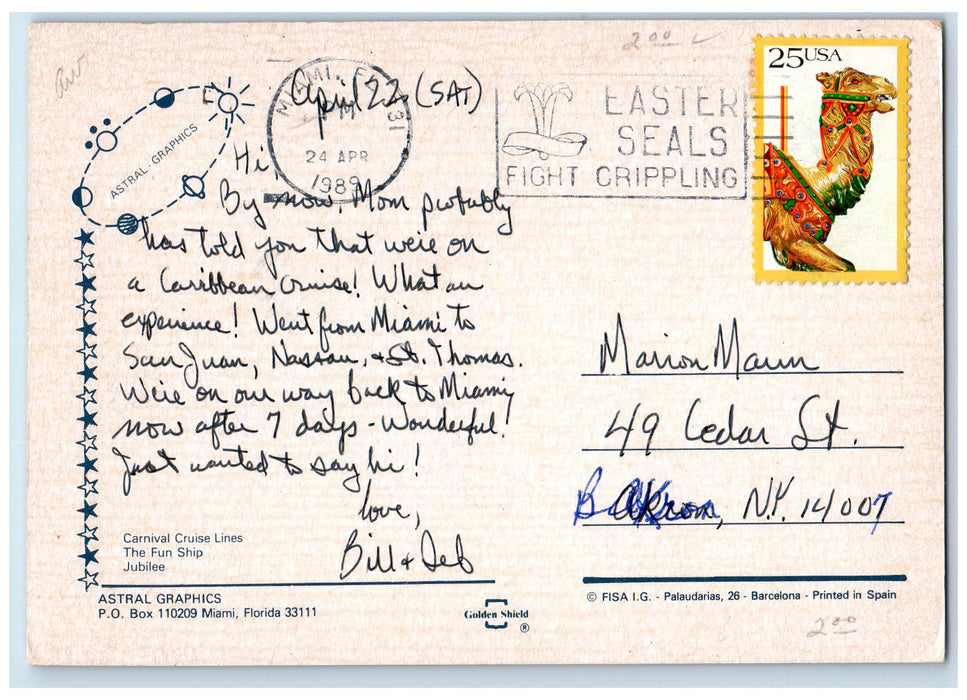 aw
2.00
25 USA
MIAMI, FL 331
PM
24 APR
1989
EASTER
SEALS
FIGHT CRIPPLING
ASTRAL - GRAPHICS
April 22 (SAT)
Hi,
By now, Mom probably
has told you that we're on
a Caribbean Cruise! What an
experience! Went from Miami to
San Juan, Nassau, + St. Thomas.
We're on our way back to Miami
now after 7 days - Wonderful!
Just wanted to say hi!
Love,
Bill + Deb
Marion Maun
49 Cedar St.
Akron, N.Y. 14007
Carnival Cruise Lines
The Fun Ship
Jubilee
ASTRAL GRAPHICS
P.O. Box 110209 Miami, Florida 33111
Golden Shield
®
© FISA I.G. - Palaudarias, 26 - Barcelona - Printed in Spain
2.00